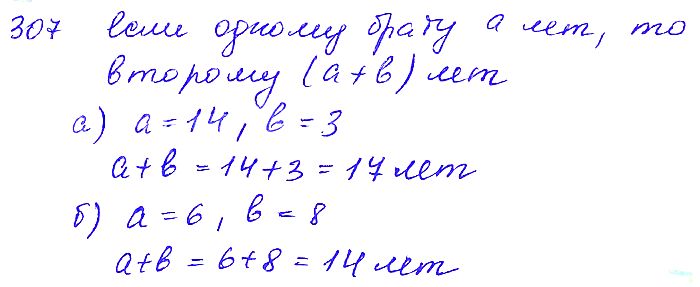 307 если одному брату a лет, то
второму (a+b) лет
а) a=14, b=3
a+b = 14+3 = 17 лет
б) a=6, b=8
a+b = 6+8 = 14 лет